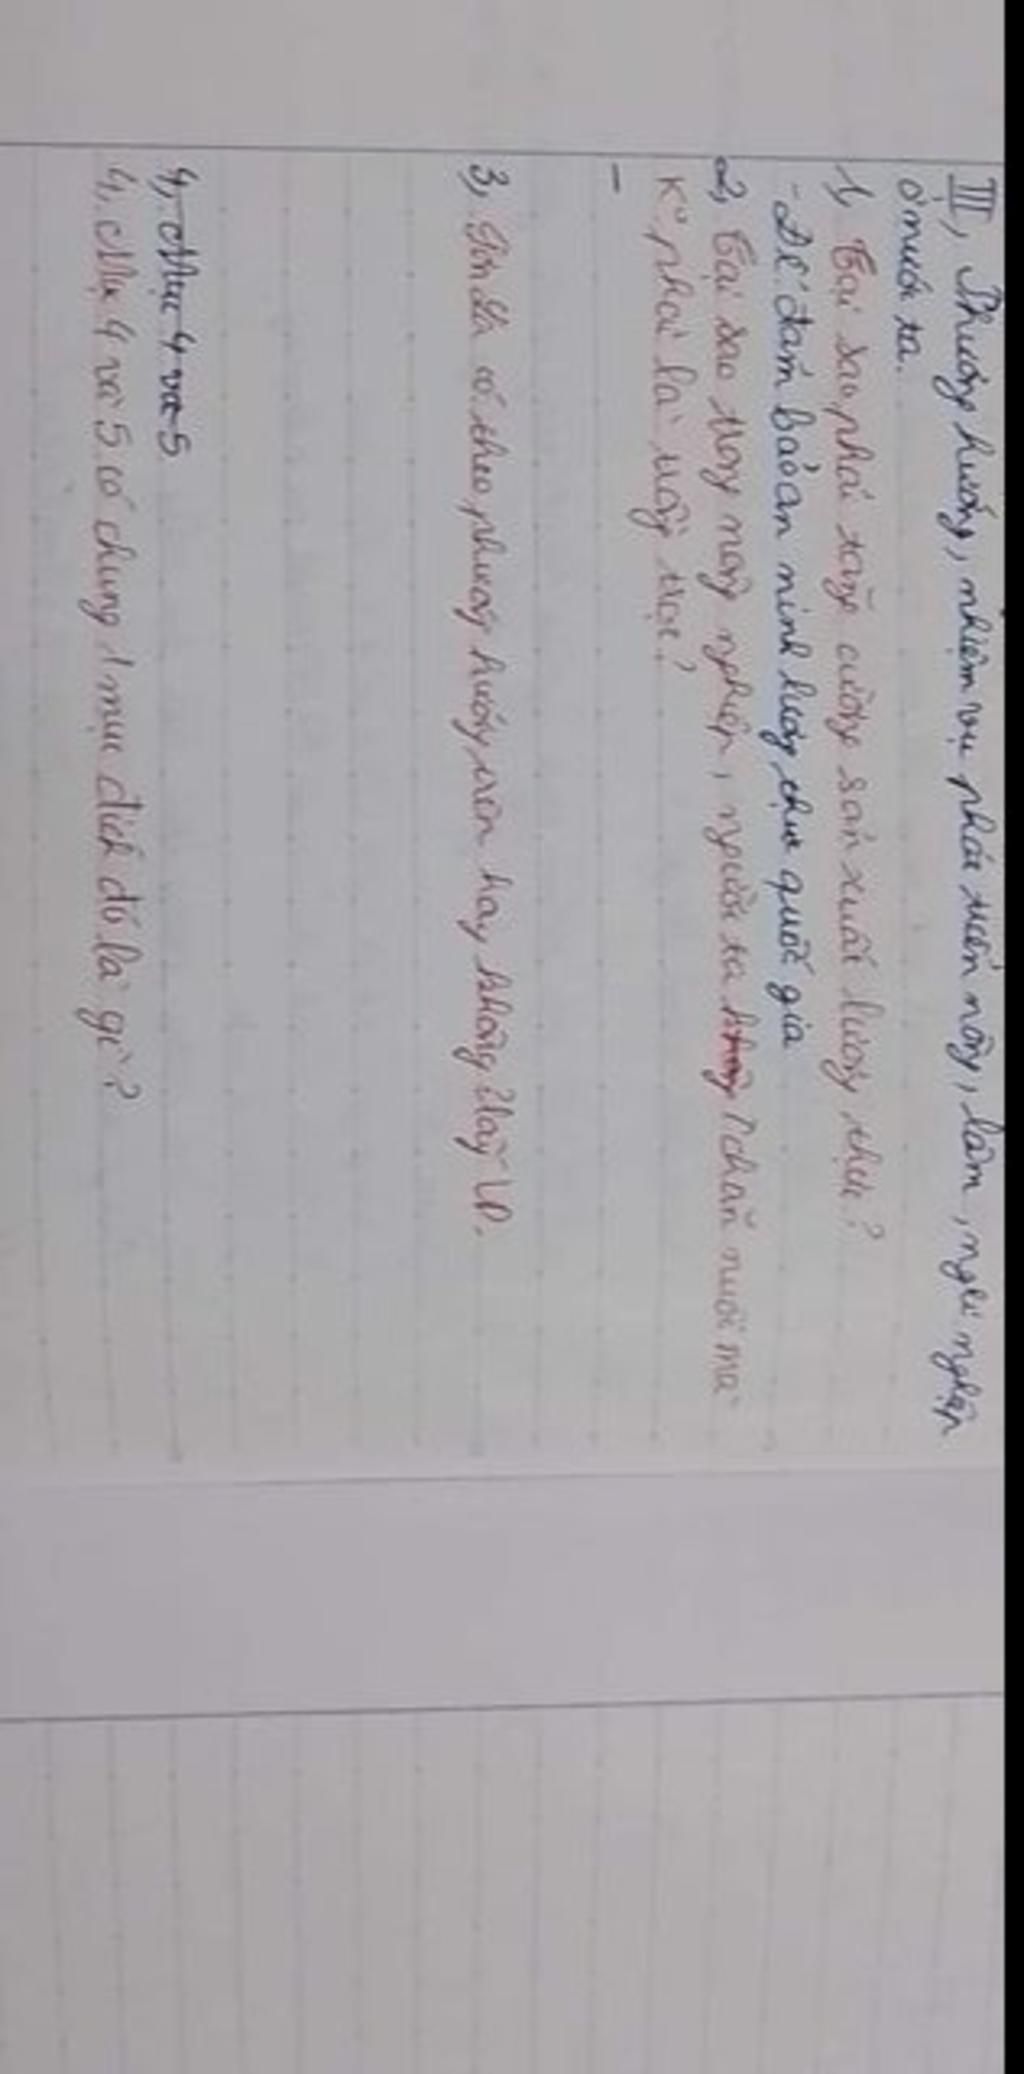 III, Phương hướng, nhiệm vụ phát triển nông, lâm, ngư nghiệp
ở nước ta.
1, Tại sao phải tăng cường sản xuất lương thực?
- Để đảm bảo an ninh lương thực quốc gia
2, Tại sao trong nông nghiệp, người ta chăn nuôi mà
K° phải là trồng trọt?
-
3, Gia đình có theo phương hướng trên hay không? Lấy VD.
4, Mục 4 và 5
4, Mục 4 và 5 có chung 1 mục đích đó là gì?